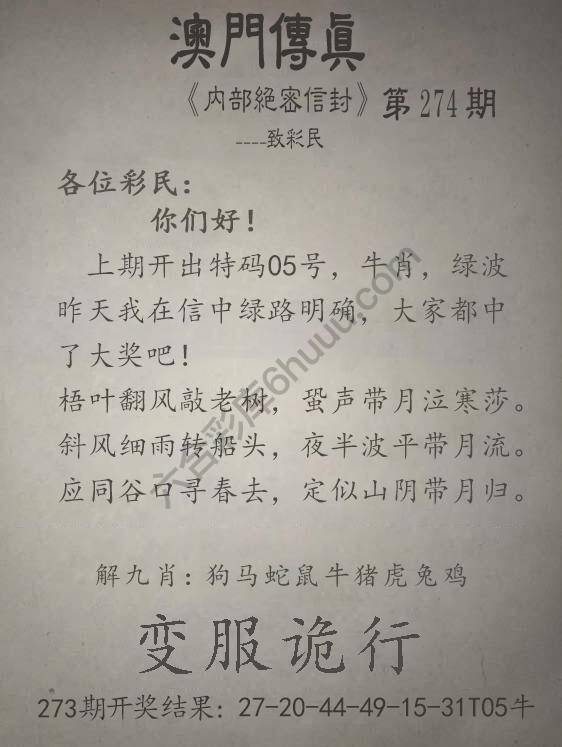 澳門傳眞
《内部絕密信封》第274期
----致彩民
各位彩民：
你们好！
上期开出特码05号，牛肖，绿波
昨天我在信中绿路明确，大家都中
了大奖吧！
梧叶翻风敲老树，蛩声带月泣寒莎。
斜风细雨转船头，夜半波平带月流。
应同谷口寻春去，定似山阴带月归。
解九肖：狗马蛇鼠牛猪虎兔鸡
变服诡行
273期开奖结果：27-20-44-49-15-31T05牛
六合彩库6huuu.com